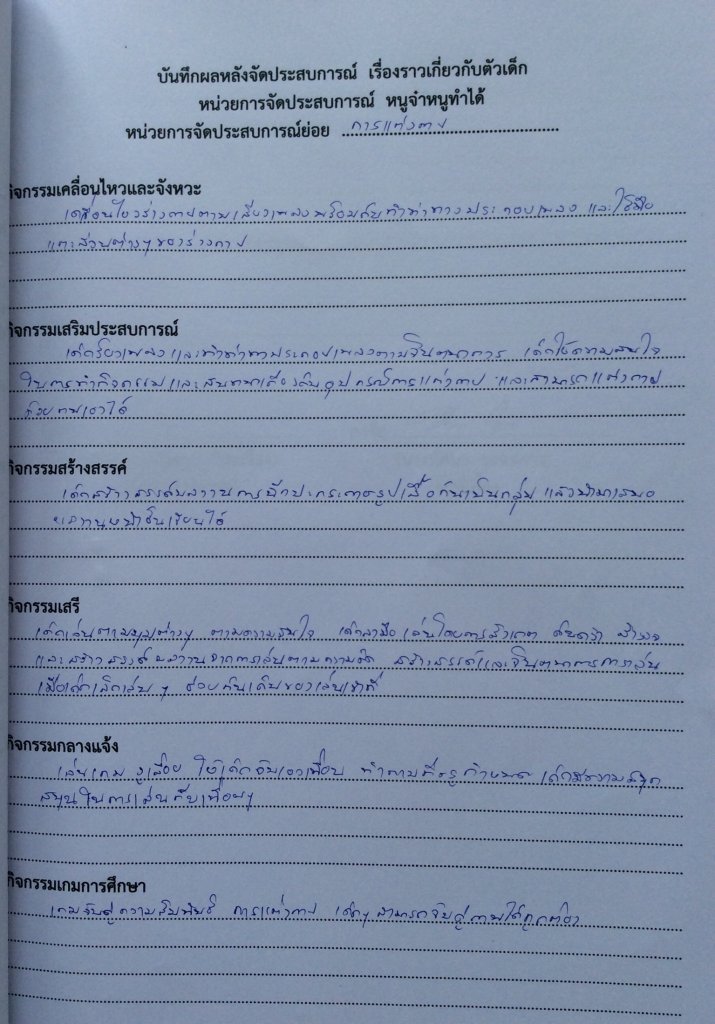 บันทึกผลหลังจัดประสบการณ์ เรื่องราวเกี่ยวกับตัวเด็ก
หน่วยการจัดประสบการณ์ หนูจ๋าหนูทำได้
หน่วยการจัดประสบการณ์ย่อย การแต่งกาย
กิจกรรมเคลื่อนไหวและจังหวะ
เคลื่อนไหวร่างกายตามเสียงเพลงพร้อมกับทำท่าทางประกอบเพลง และใช้มือ
แตะส่วนต่างๆของร่างกาย
กิจกรรมเสริมประสบการณ์
เด็กร้องเพลงและทำท่าทางประกอบเพลงตามจินตนาการ เด็กให้ความสนใจ
ในการทำกิจกรรมและสนทนาเกี่ยวกับอุปกรณ์การแต่งกาย และสามารถแต่งกาย
ด้วยตนเองได้
กิจกรรมสร้างสรรค์
เด็กสร้างสรรค์ผลงานการ กระดาษรูปเสื้อกันเป็นกลุ่ม แล้วนำมาเสนอ
ผลงานหน้าชั้นเรียนได้
กิจกรรมเสรี
เด็กเล่นตามมุมต่างๆ ตามความสนใจ เด็กลงมือเล่นโดยการสังเกต ค้นคว้า สำรวจ
และสร้างสรรค์ผลงานจากการเล่นตามความคิด สร้างสรรค์และจินตนาการการเล่น
เมื่อเด็กเลิกเล่นๆ ช่วยกันเก็บของเล่นเข้าที่
กิจกรรมกลางแจ้ง
เล่นเกม งูเลื้อย ให้เด็กจับเอวเพื่อน ทำตามที่ครูกำหนด เด็กมีความสนุก
สนานในการเล่นกับเพื่อนๆ
กิจกรรมเกมการศึกษา
เกมจับคู่ความสัมพันธ์ การแต่งกาย เด็กๆสามารถจับคู่ภาพได้ถูกต้อง